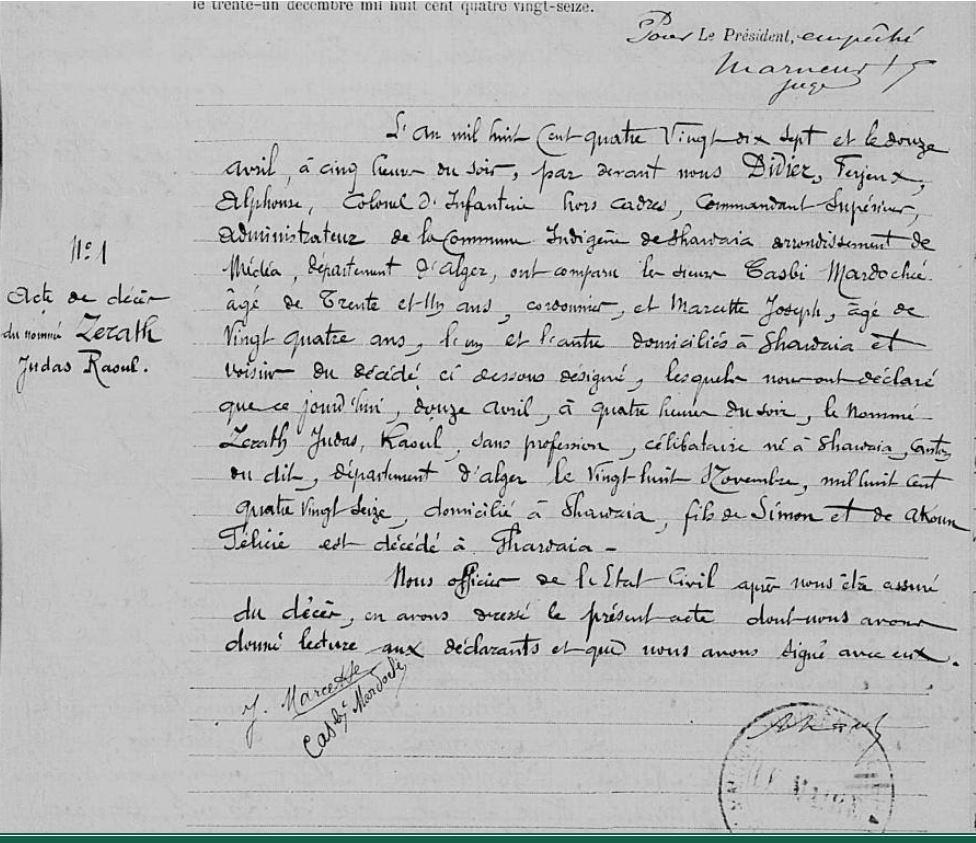 le trente-un décembre mil huit cent quatre vingt-seize.
Pour Le Président, empêché
juge
L'an mil huit Cent quatre Vingt dix Sept et le douze
avril, à cinq heures du soir, par devant nous Didier, Ferjeux,
Alphonse, Colonel d'Infanterie hors cadres, Commandant Supérieur,
Administrateur de la Commune Indigène de Ghardaia arrondissement de
Média, département d'Alger, ont comparu les sieurs Casbi Mardochée
âgé de Trente et Un ans, cordonnier, et Marcette Joseph, âgé de
Vingt quatre ans, l'un et l'autre domiciliés à Ghardaia et
voisins du décédé ci dessous désigné, lesquels nous ont déclaré
que ce jourd'hui, douze avril, à quatre heures du soir, le nommé
Zerath Judas, Raoul, sans profession, célibataire né à Ghardaia, Canton
du dit, département d'alger le Vingt huit Novembre, mil huit cent
quatre Vingt Seize, domicilié à Ghardaia, fils de Simon et de Akoun
Félicie est décédé à Ghardaia -
Nous officier de l'Etat Civil après nous être assuré
du décès, en avons dressé le présent acte dont nous avons
donné lecture aux déclarants et que nous avons signé avec eux.
N° 1
Acte de décès
du nommé Zerath
Judas Raoul.
J. Marcette
Casbi Mardoché